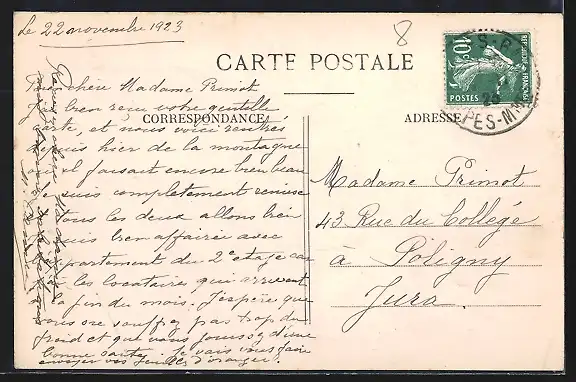 Le 22 novembre 1923
8
CARTE POSTALE
CORRESPONDANCE
ADRESSE
10c
POSTES
REPUBLIQUE FRANÇAISE
PES-M
chère Madame Primot
J'ai bien reçu votre gentille
carte, et nous voici rentrés
depuis hier de la montagne
il faisait encore bien beau
je suis complètement remise
tous les deux allons bien
suis bien affairée avec
l'appartement du 2e etage car
les locataires qui arrivent
la fin du mois. J'espère que
vous ne souffrez pas trop du
froid et que vous jouissez d'une
bonne santé. Je vais vous faire
envoyer vos feuilles d'oranger.
Madame Primot
43 Rue du Collège
à Poligny
Jura.